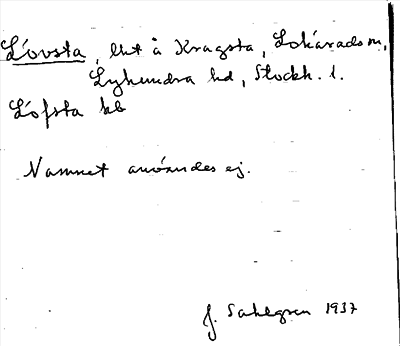 Lövsta, lht å Kragsta, Lohärads sn,
Lyhundra hd, Stockh. l.
Löfsta kb
Namnet användes ej.
J. Sahlgren 1937